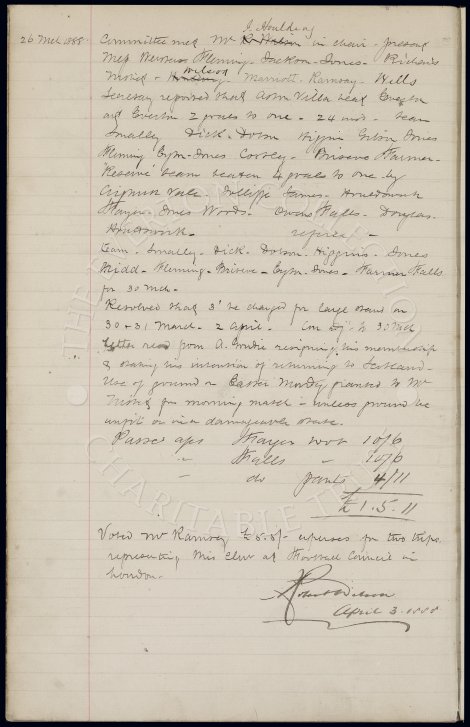 J. Houlding
26 Mch 1888 Committee met Mr R Wilson in chair - present
Messrs Fleming - Jackson - Jones - Richards
Wilson
Nisbet - Marriott - Ramsay - Wells
Secretary reported that Aston Villa beat Everton
at Everton 2 goals to one - 24 inst - team
Smalley Dick - Dobson Higgins Gibson Jones
Fleming Eyton-Jones Costley - Briscoe Farmer -
'Reserve' team beaten 4 goals to one by
Cefnmawr Vale Jolliffe James -
Thayer - Jones Woods - Owens Falls - Douglas.
refused -
Team - Smalley - Dick - Dobson - Higgins - Jones
Fleming - Briscoe - Eyton-Jones - Farmer Falls
for 30 Mch -
Resolved that 3d be charged for large stand on
30 + 31 March - 2 April.
letter read from A. Goudie resigning his membership
& stating his intention of returning to Scotland -
Use of ground on Easter Monday granted to Mr
Nisbet for morning match - unless ground be
unfit or in a damageable state.
Passed a/cs Thayer boots 10/6
" Falls " 10/6
" do pants 4/11
£1.5.11
Voted Mr Ramsay £5.5/- expenses for two trips
representing this Club at Football Council in
London -
Robert Wilson
April 3. 1888
THE EVERTON COLLECTION
CHARITABLE TRUST